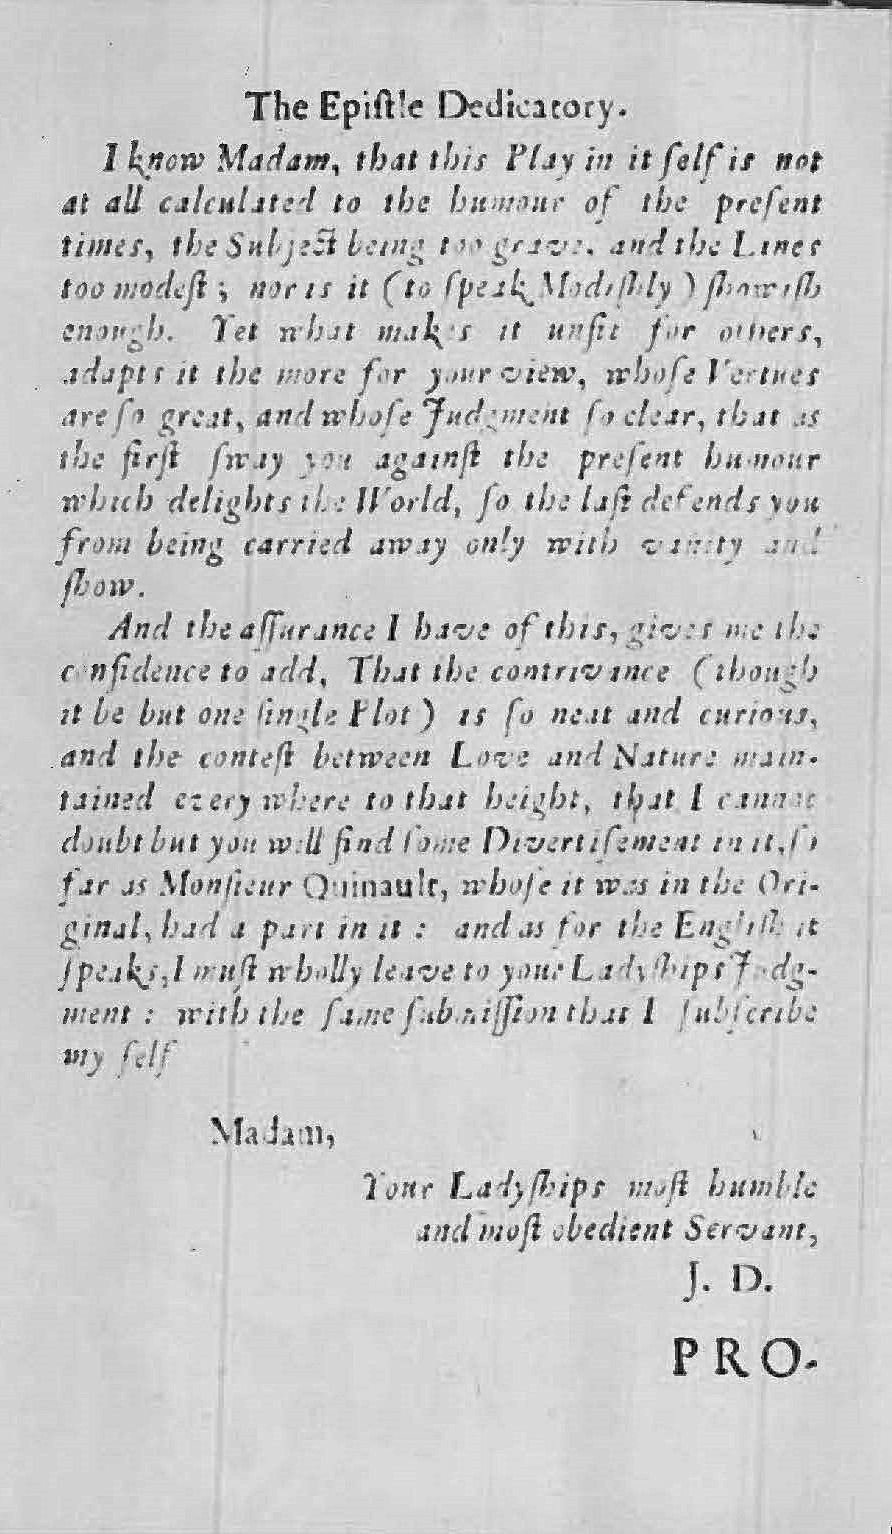 The Epiſtle Dedicatory.
I know Madam, that this Play in it ſelf is not
at all calculated to the humour of the preſent
times, the Subject being too grave, and the Lines
too modeſt; nor is it (to ſpeak Modiſhly) ſhowiſh
enough. Yet what makes it unfit for others,
adapts it the more for your view, whoſe Vertues
are ſo great, and whoſe Judgment ſo clear, that as
the firſt ſway you againſt the preſent humour
which delights the World, ſo the laſt defends you
from being carried away only with vanity and
ſhow.
And the aſſurance I have of this, gives me the
confidence to add, That the contrivance (though
it be but one ſingle Plot) is ſo neat and curious,
and the conteſt between Love and Nature main-
tained every where to that height, that I cannot
doubt but you will find ſome Divertiſement in it, ſo
far as Monſieur Quinault, whoſe it was in the Ori-
ginal, had a part in it: and as for the Engliſh it
ſpeaks, I muſt wholly leave to your Ladyſhips Judg-
ment: with the ſame ſubmiſſion that I ſubſcribe
my ſelf
Madam,
Your Ladyſhips moſt humble
and moſt obedient Servant,
J. D.
PRO-